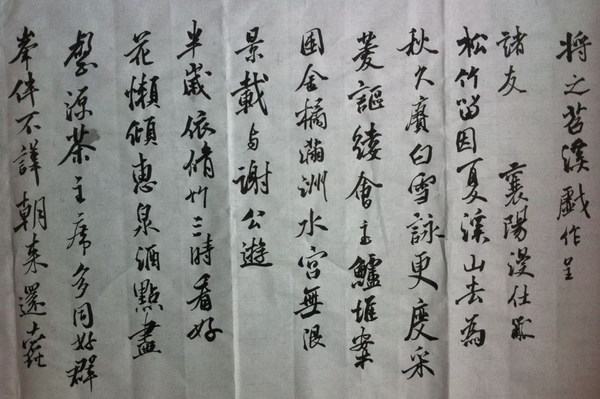 将之苕溪戲作呈
諸友 襄陽漫仕黻
松竹留因夏溪山去為
秋久賡白雪詠更度采
菱謳縷會玉鱸堆案
團金橘滿洲水宮無限
景載与謝公遊
半歲依脩竹三時看好
花懶傾惠泉酒點盡
壑源茶主席多同好群
峯伴不譁朝來還蠹